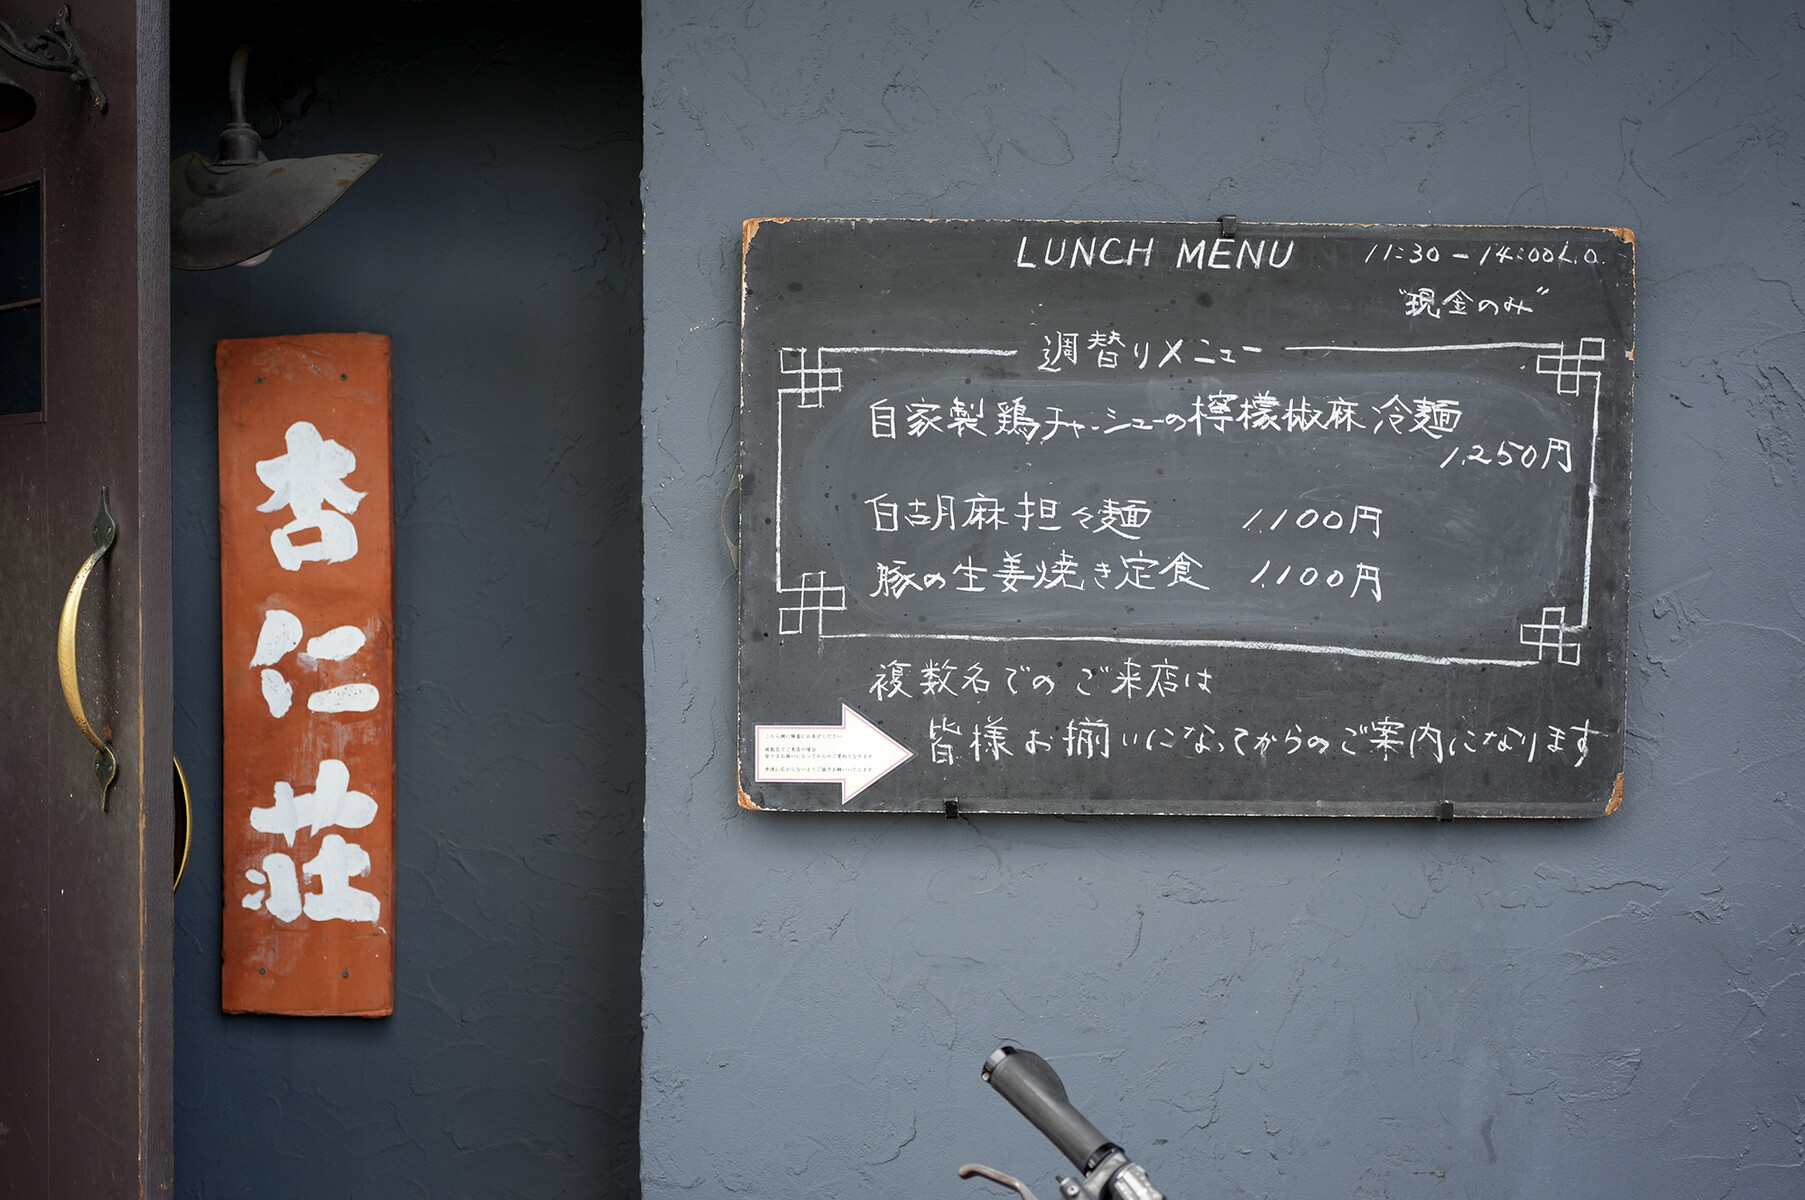 杏仁荘
LUNCH MENU 11:30-14:00L.O.
"現金のみ"
週替りメニュー
自家製鶏チャーシューの檸檬椒麻冷麺
1,250円
白胡麻担々麺 1,100円
豚の生姜焼き定食 1,100円
複数名でのご来店は
皆様お揃いになってからのご案内になります